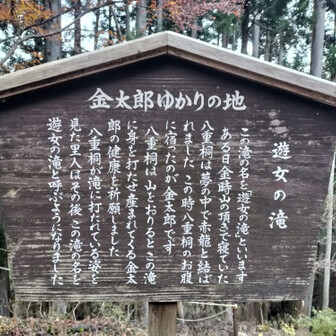 金太郎ゆかりの地
遊女の滝
この滝の名を「遊女の滝」といいます
ある日金時山の頂きで寝ていた
八重桐は夢の中で赤龍と結ば
れました この時八重桐のお腹
に宿ったのが金太郎です
八重桐は山をおりるとこの滝
に身を打たせ産まれてくる金太
郎の健康を祈願しました
八重桐が滝に打たれている姿を
見た里人はその後この滝の名を
遊女の滝と呼ぶようになりました